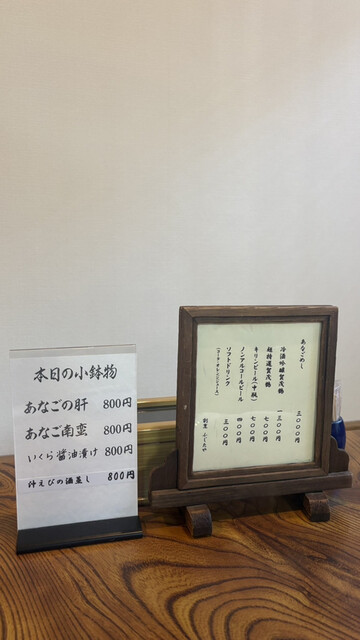 本日の小鉢物
あなごの肝 800円
あなご南蛮 800円
いくら醤油漬け 800円
沖えびの酒蒸し 800円
あなごめし 三、〇〇〇円
冷酒吟醸賀茂鶴 一、三〇〇円
超特選賀茂鶴 七〇〇円
キリンビール(中瓶) 七〇〇円
ノンアルコールビール 四〇〇円
ソフトドリンク 三〇〇円